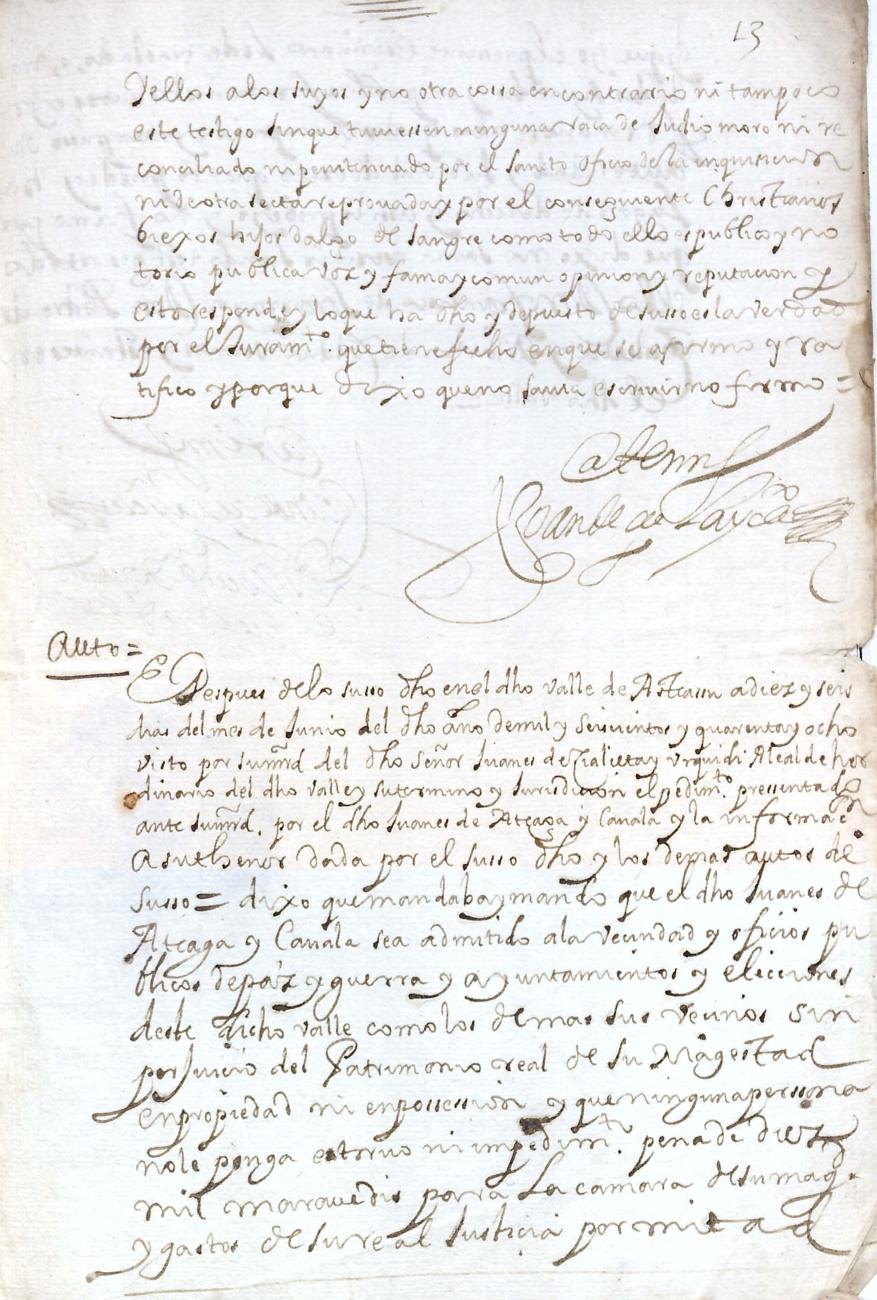 13
dellos a los suyos y no otra cossa en contrario ni tampoco
este testigo sin que tuviessen ninguna raca de Judio moro ni re
conciliado ni penitenciado por el sancto oficio de la inquisicion
ni de otra secta reprovada y por el conseguiente Christianos
biexos hijos dalgo de sangre como todo ello es publico y no
torio publica voz y fama y comun opinion y reputacion y
esto responde y lo que ha dho y depuesto de susso es la verdad
por el Juramto. que tiene fecho en que se afirmo y ra
tifico y porque dixo que no savia escriuir no firmo =
Ante mi
Auto =
E Despues de lo susso dho en el dho valle de Asteasu a diez y seis
dias del mes de Junio del dho año de mil y seiscientos y quarenta y ocho
visto por su mrd del dho señor Juanes de Çialçeta y Urquidi Alcalde hor
dinario del dho valle y su termino y Jurisdicion el pedimto. presentado
ante su mrd. por el dho Juanes de Ateaga y Çavala y la informacon
a su thenor dada por el susso dho y los demas autos de
susso = dixo que mandaba y mando que el dho Juanes de
Ateaga y Çavala sea admitido a la vecindad y oficios pu
blicos de paz y guerra y ayuntamientos y elecciones
deste dicho valle como los demas sus vecinos sin
perJuicio del Patrimonio real de Su Magestad
en propiedad ni en possession y que ninguna perssona
no le ponga estorvo ni impedimto. pena de diez
mil maravedis para la camara de su mag.
y gastos de su real Justicia por mitad